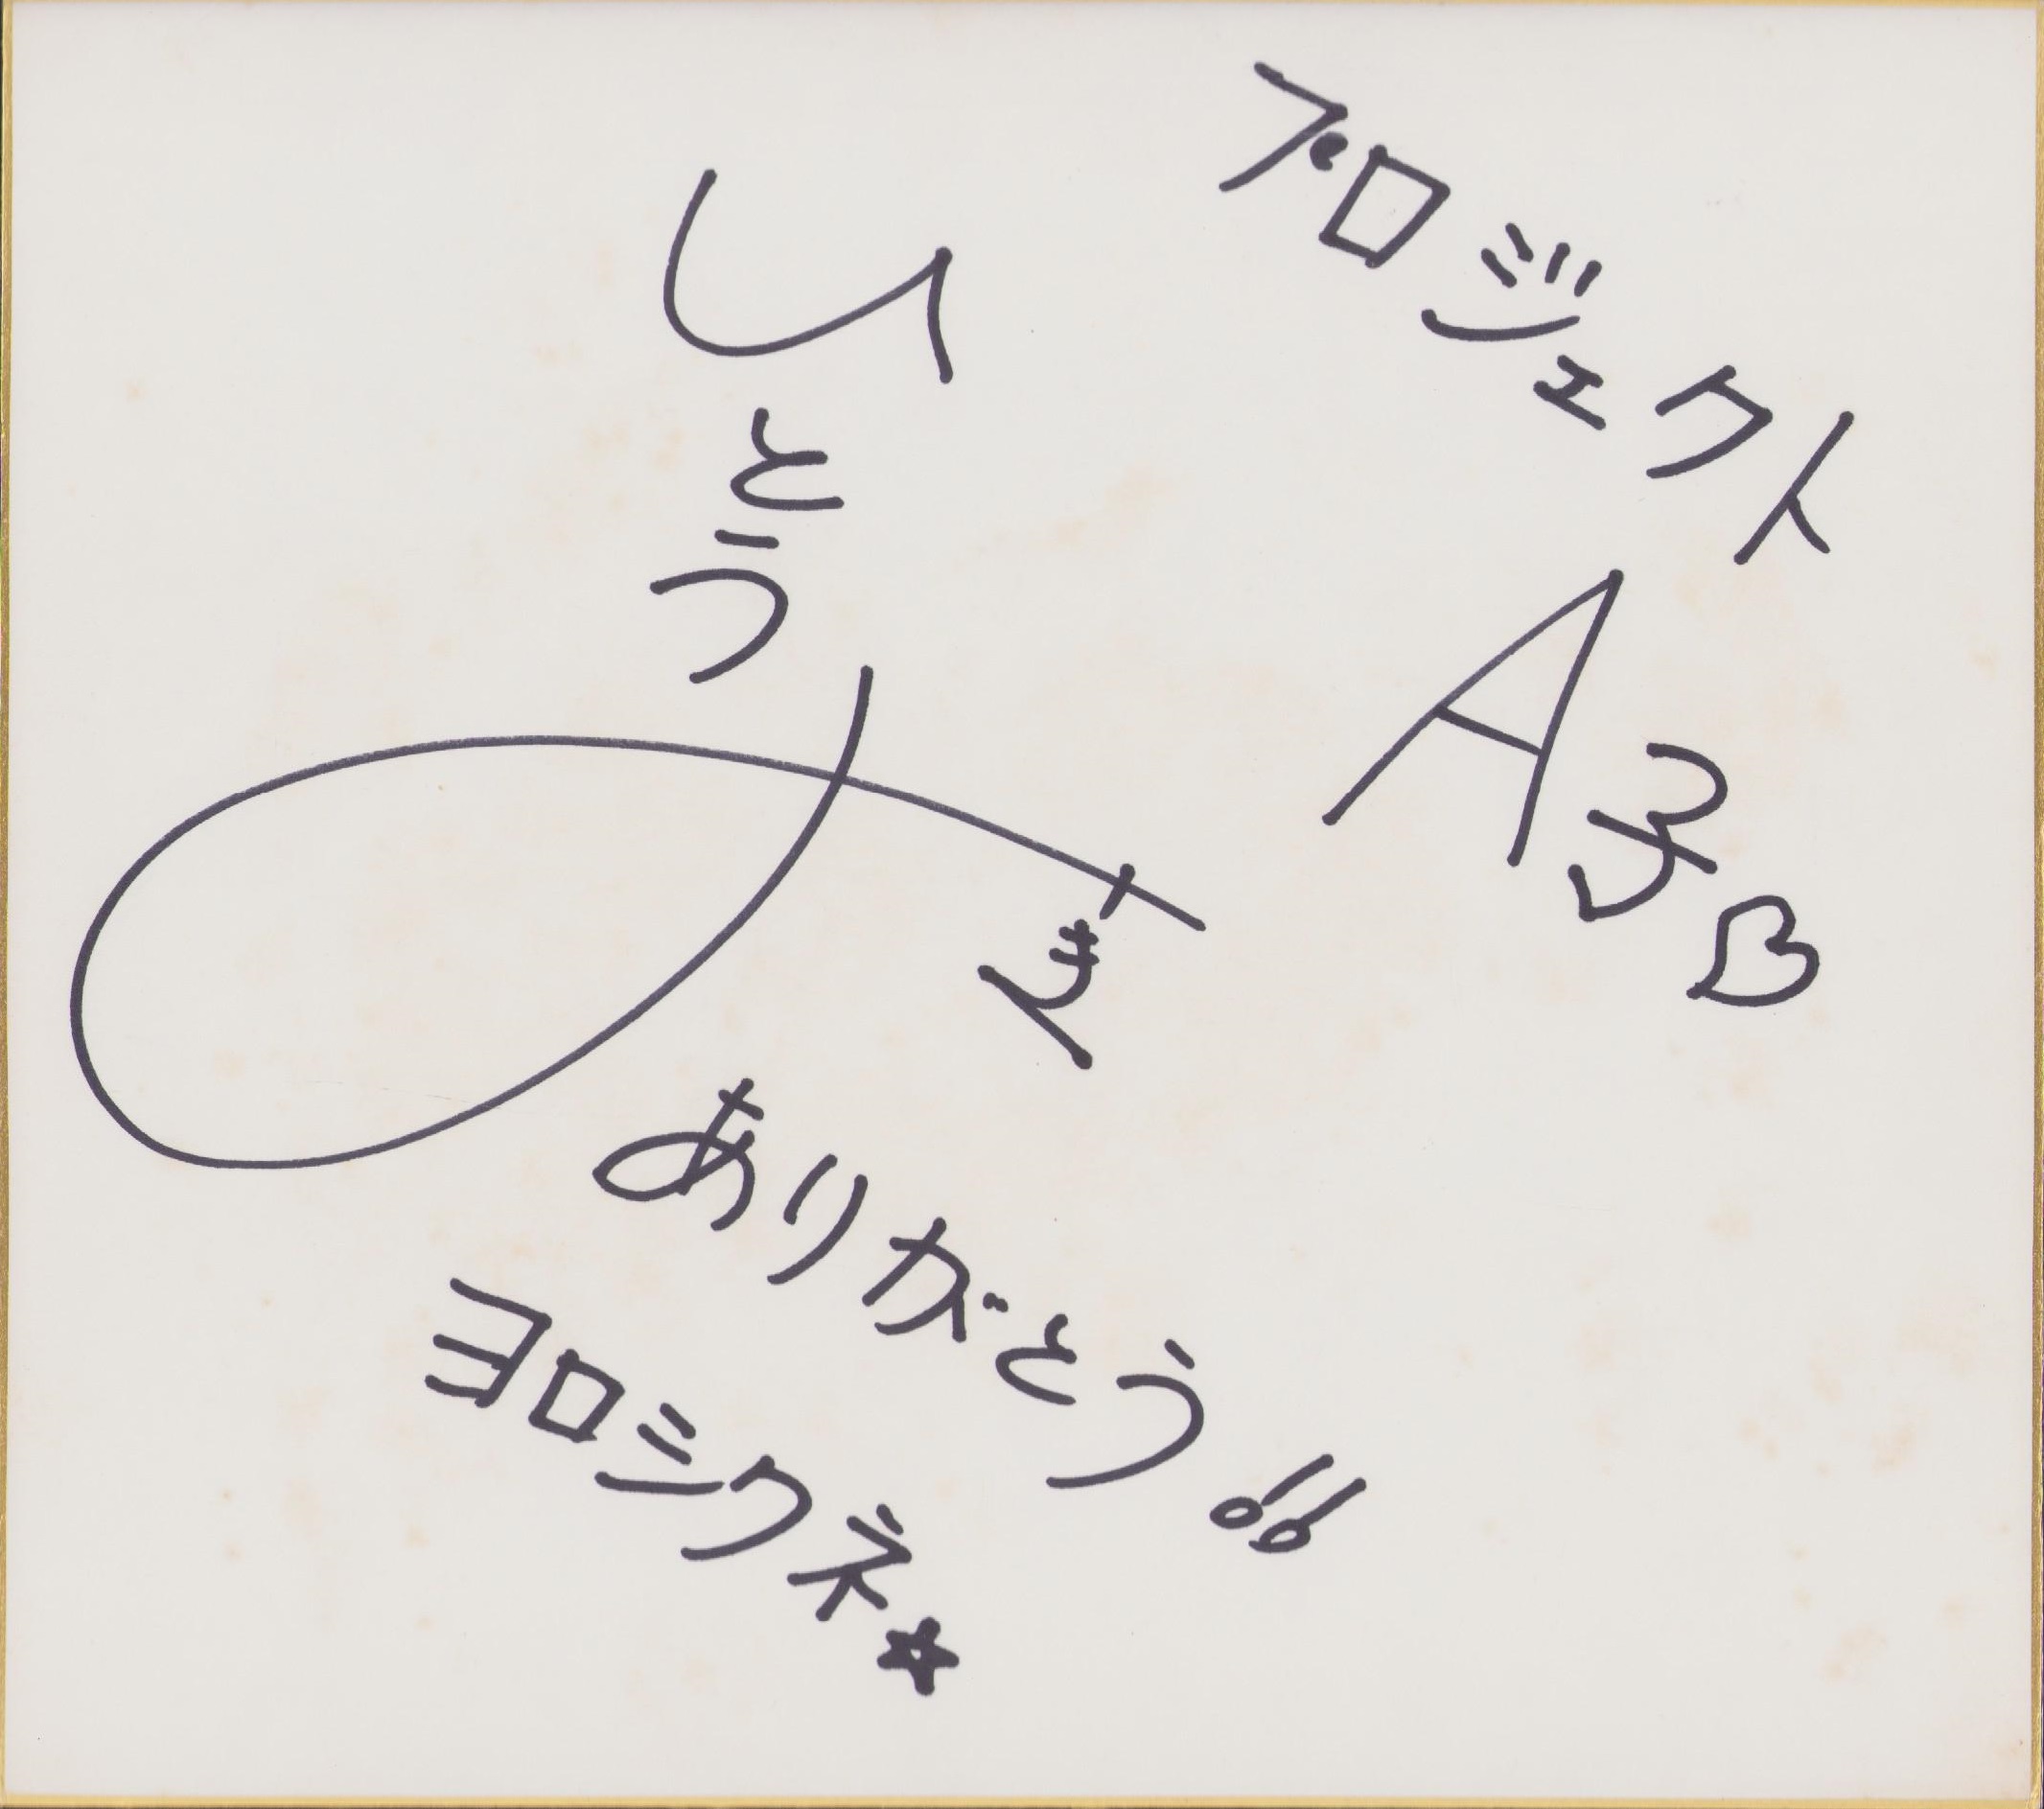 プロジェクト
A子♡
いとうみき
ありがとう!!
ヨロシクネ☆